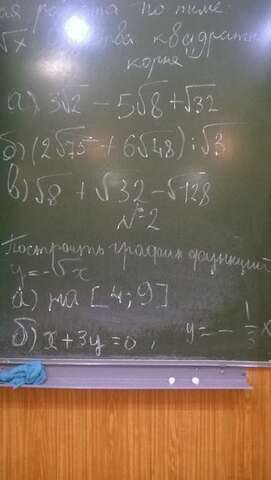 ая работа по теме:
√x войства квадратн
корня
а) 3√2 − 5√8 + √32
б) (2√75 + 6√48) : √3
в) √8 + √32 − √128
№2
Построить график функций
y = −√x
а) на [4; 9]
б) x + 3y = 0 , y = − 1/3 x